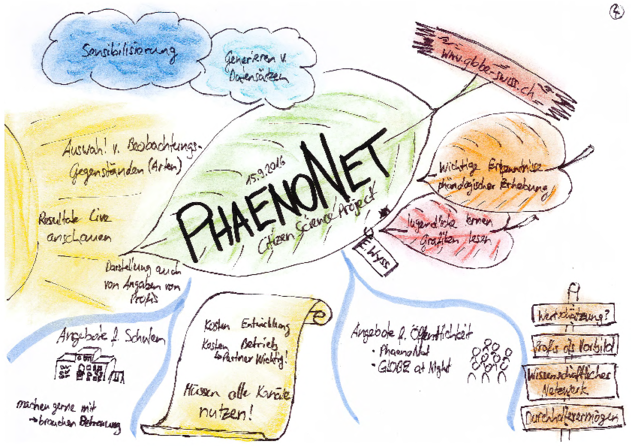 2
Sensibilisierung
Generieren v.
Datensätzen
www.globe-swiss.ch
Auswahl v. Beobachtungs-
Gegenständen (Arten)
15.9.2016
PHAENONET
Citizen Science Project
E. Wyss
Wichtige Erkenntnisse
phänologischer Erhebung
Jugendliche lernen
Grafiken lesen
Resultate Live
anschauen
Darstellung auch
von Angaben von
Profis
Angebote f. Schulen
machen gerne mit
→ brauchen Betreuung
Kosten Entwicklung
Kosten Betrieb
↳ Partner Wichtig!
Müssen alle Kanäle
nutzen!
Angebote f. Öffentlichkeit
• PhaenoNet
• GLOBE at Night
Wertschätzung?
Profis als Vorbild
Wissenschaftliches
Netzwerk
Durchhaltevermögen